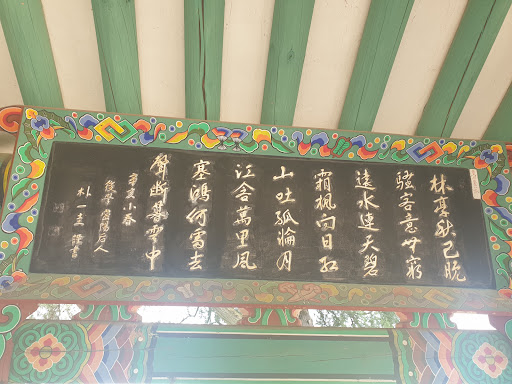 林亭秋已晚
騷客意無窮
遠水連天碧
霜楓向日紅
山吐孤輪月
江含萬里風
塞鴻何處去
聲斷暮雲中
小春
後學 密陽后人
朴一圭 謹書